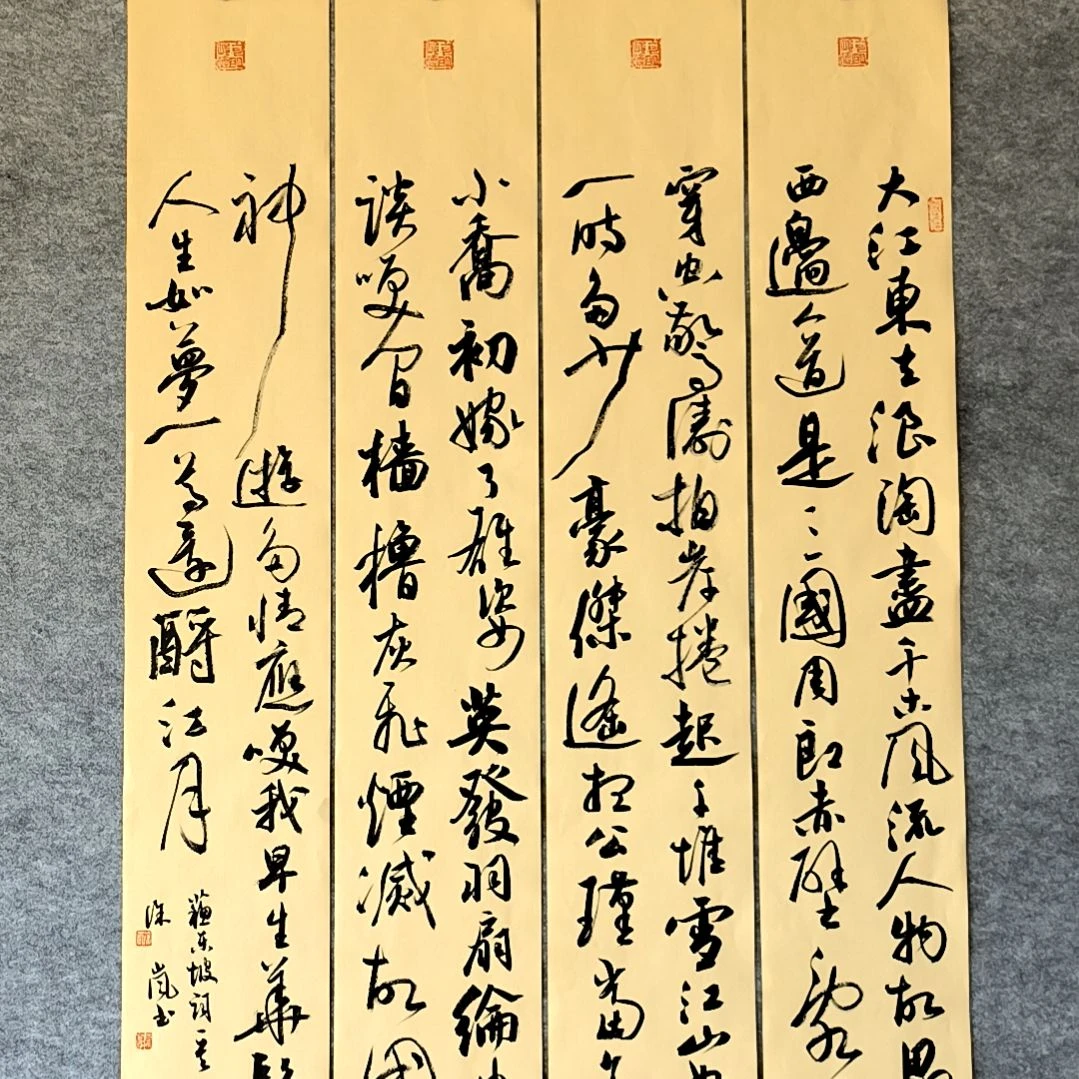 大江東去浪淘盡千古風流人物故壘
西邊人道是三國周郎赤壁亂
穿空驚濤拍岸捲起千堆雪江山
一時多少豪傑遙想公瑾當年
小喬初嫁了雄姿英發羽扇綸
談笑間檣櫓灰飛煙滅故國
神遊多情應笑我早生華髮
人生如夢一尊還酹江月
蘇東坡詞一
嵐書